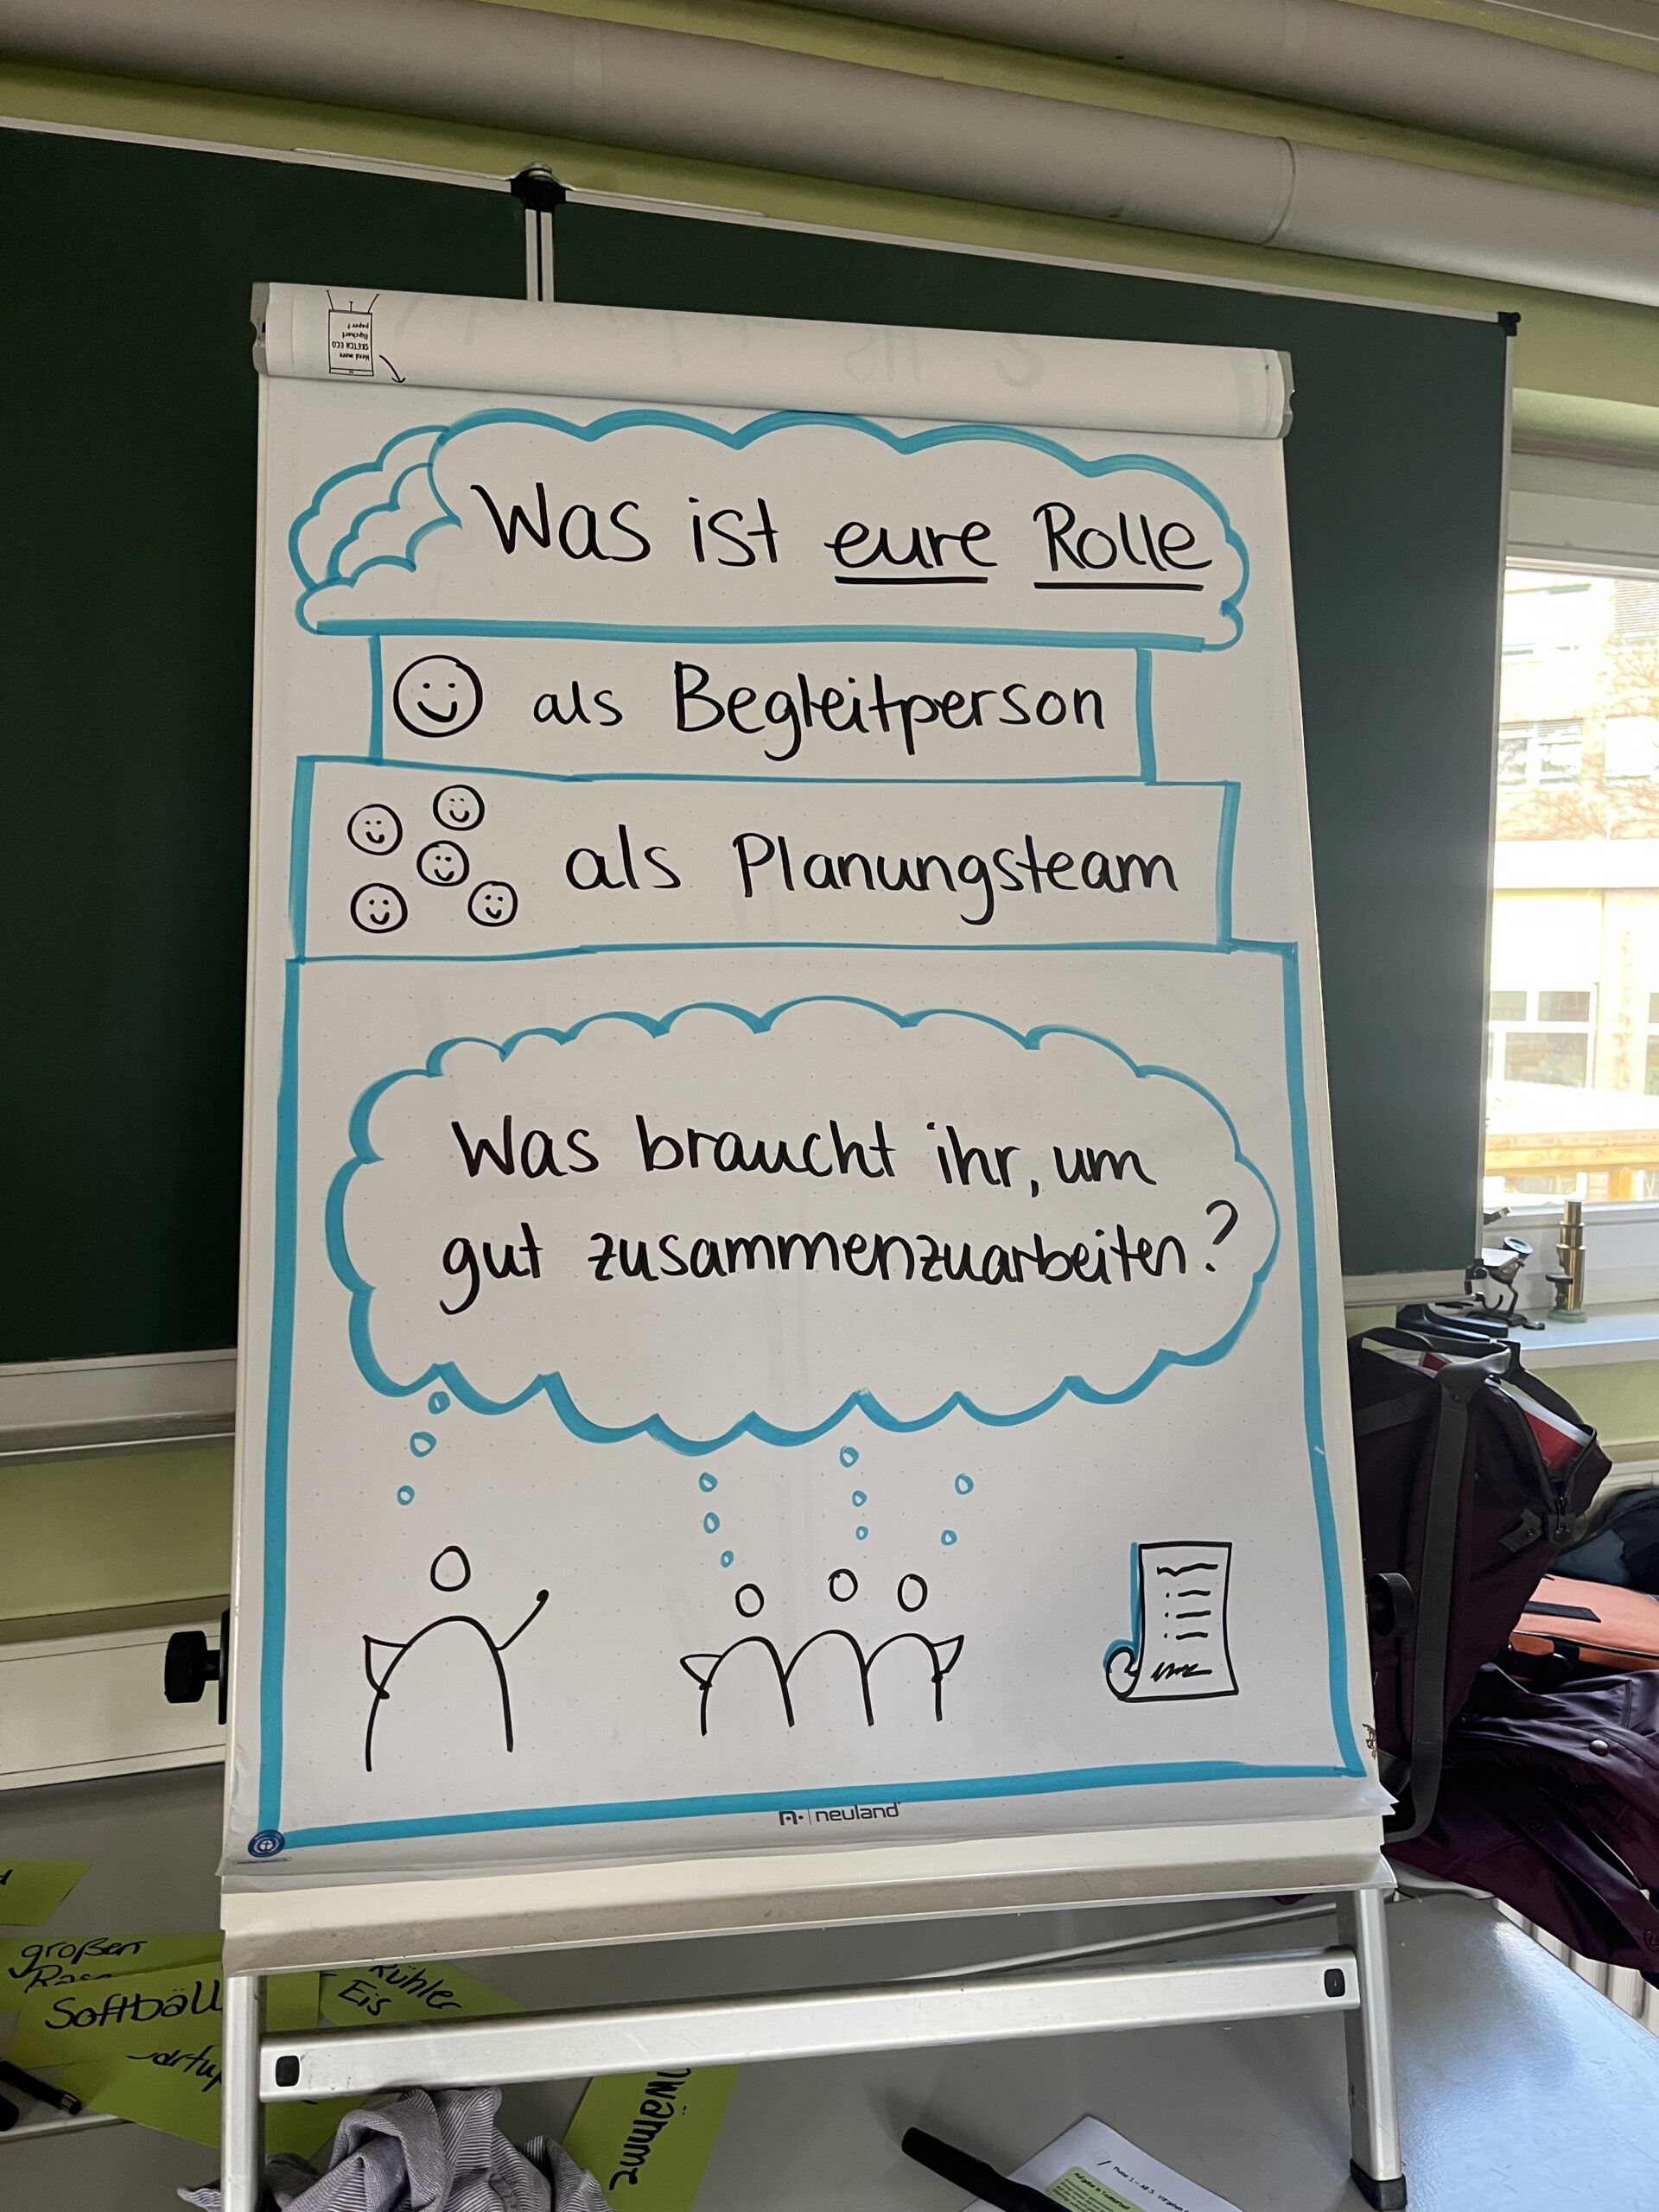 Need more
SKETCH ECO
flipchart
paper?
Was ist eure Rolle
als Begleitperson
als Planungsteam
Was braucht ihr, um
gut zusammenzuarbeiten?
neuland
großen
Softbäll
Kühler
Eis